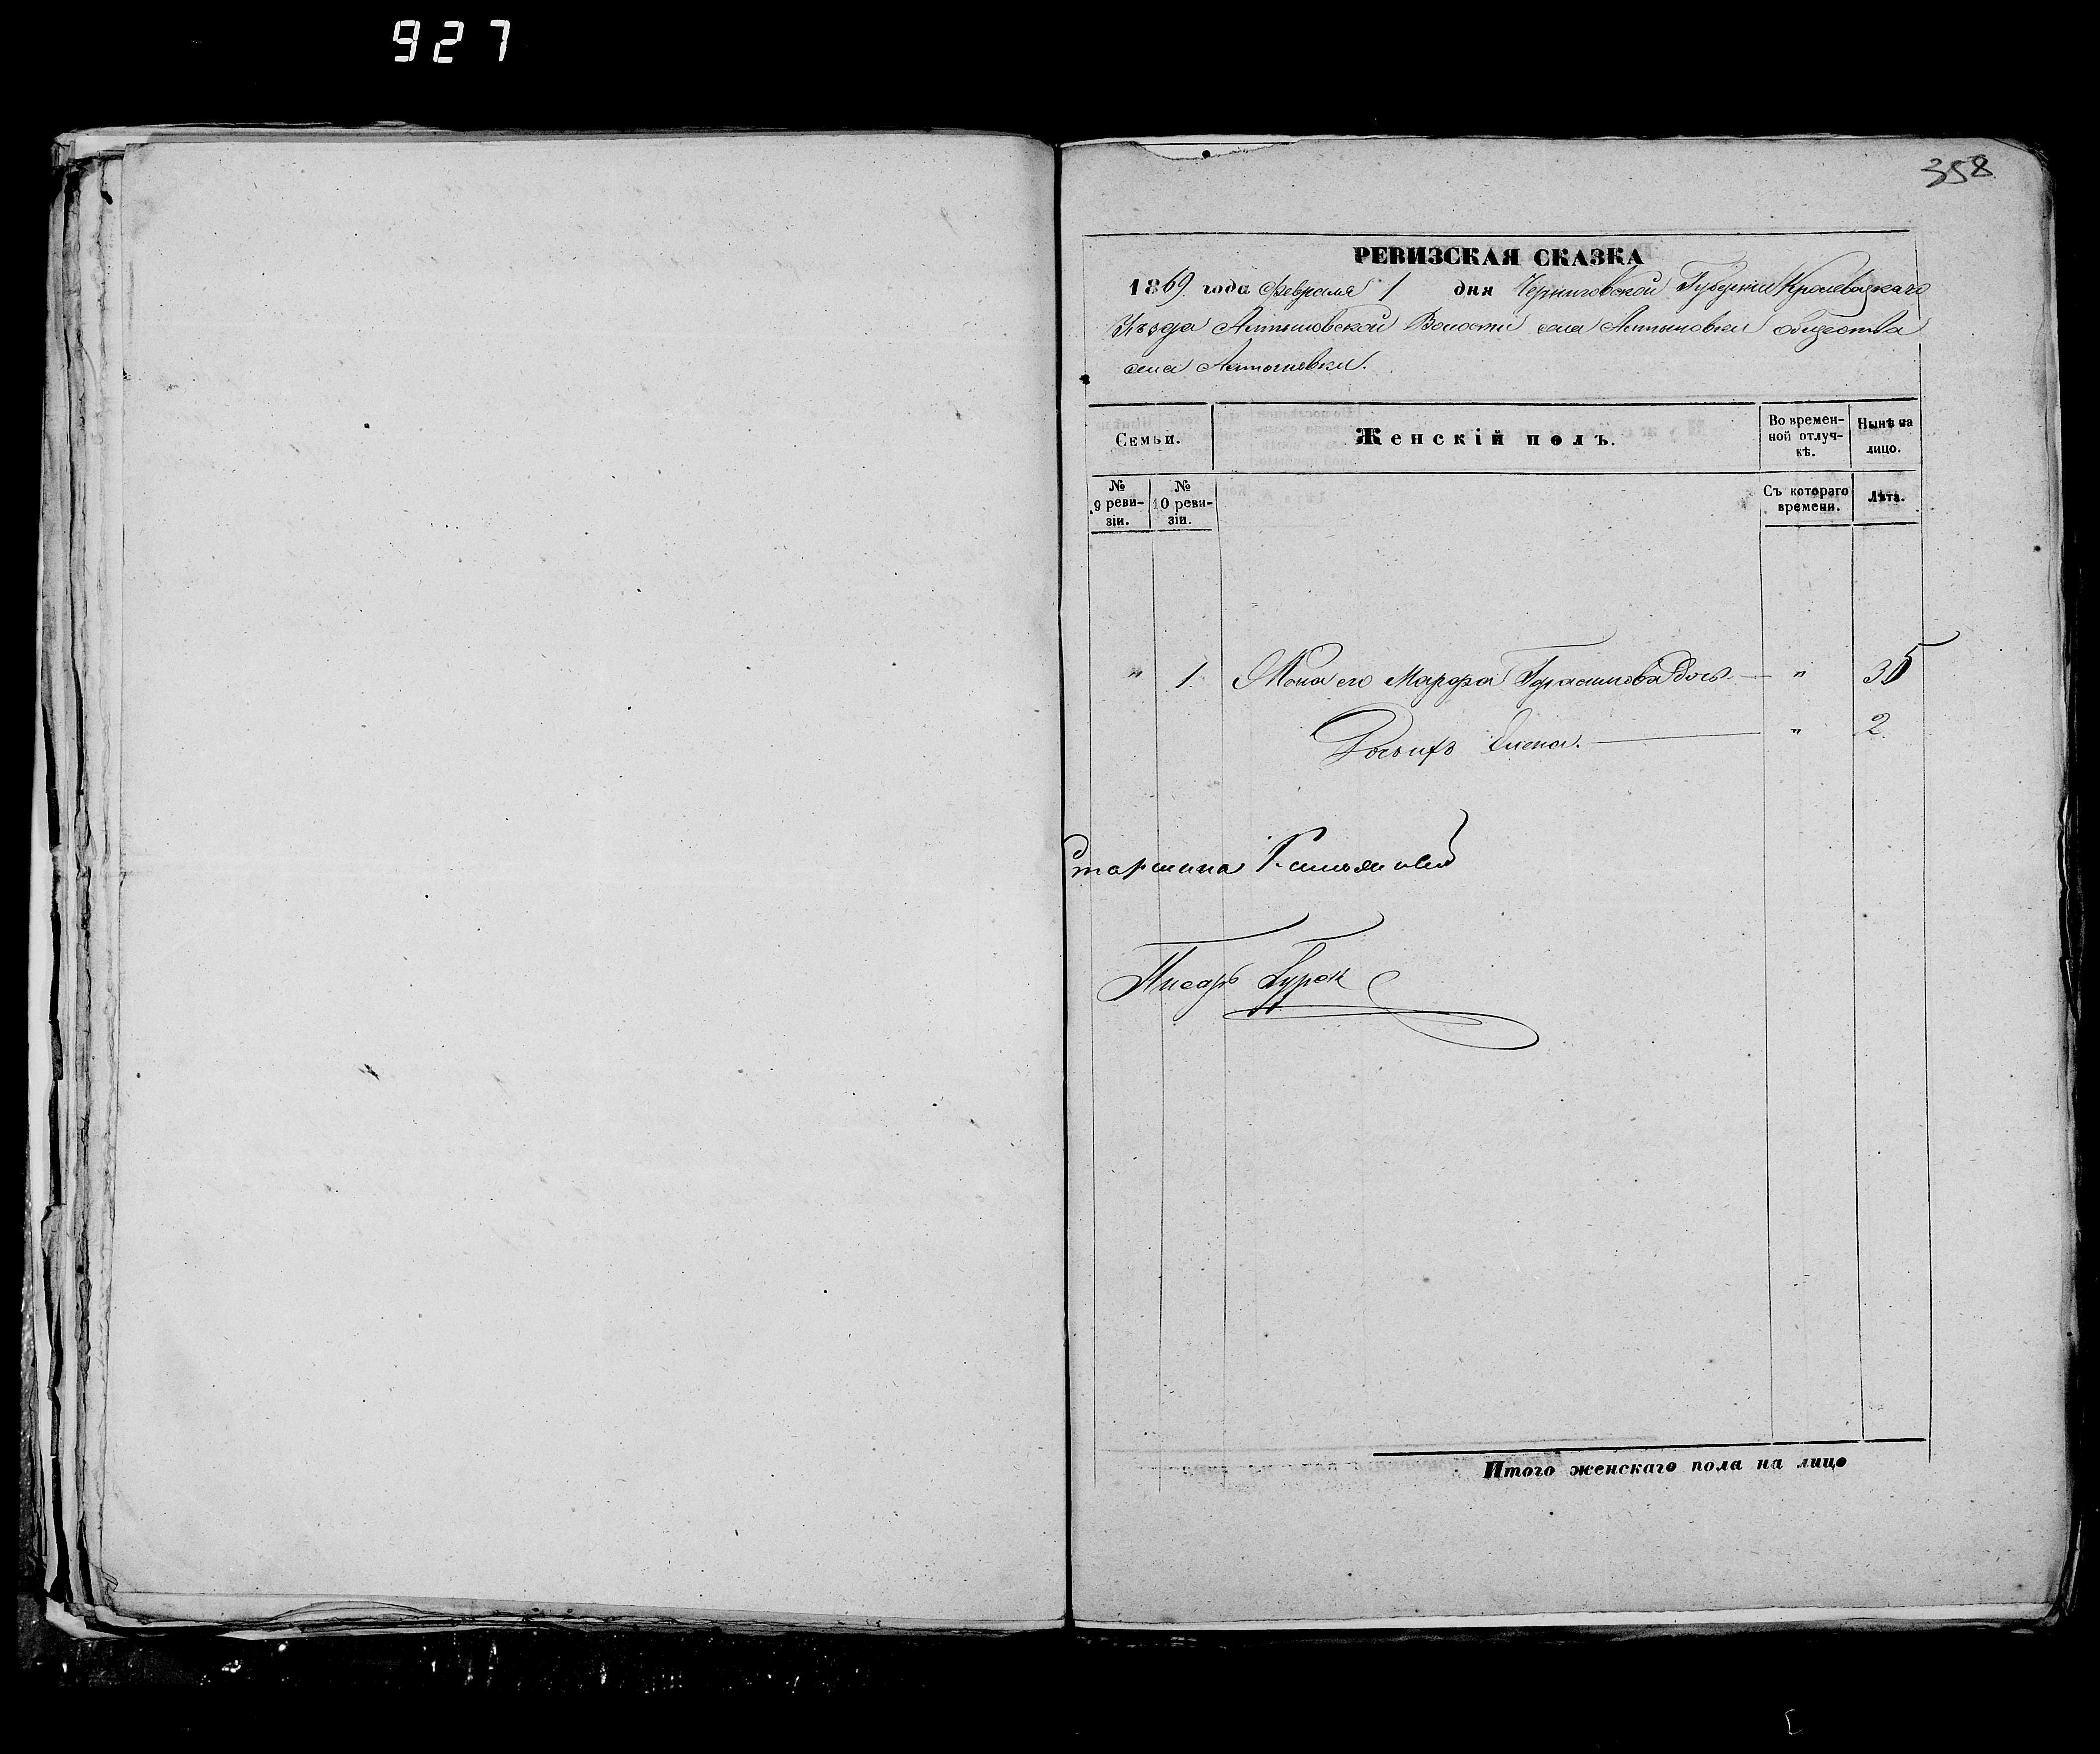 927
358
РЕВИЗСКАЯ СКАЗКА
1869 года Февраля 1 дня Черниговской Губерніи Кролевецкаго
Уѣзда Алтыновской Волости села Алтыновки общества
села Алтыновки.
Семьи.
Женскій полъ.
Во времен-
ной отлуч-
кѣ.
Нынѣ на
лицо.
№
9 реви-
зіи.
№
10 реви-
зіи.
Съ котораго
времени.
Лѣта.
" 1. Жена его Марфа Герасимова дочь — " 35
Дочь ихъ Елена. — " 2
Старшина
Писарь
Итого женскаго пола на лицо